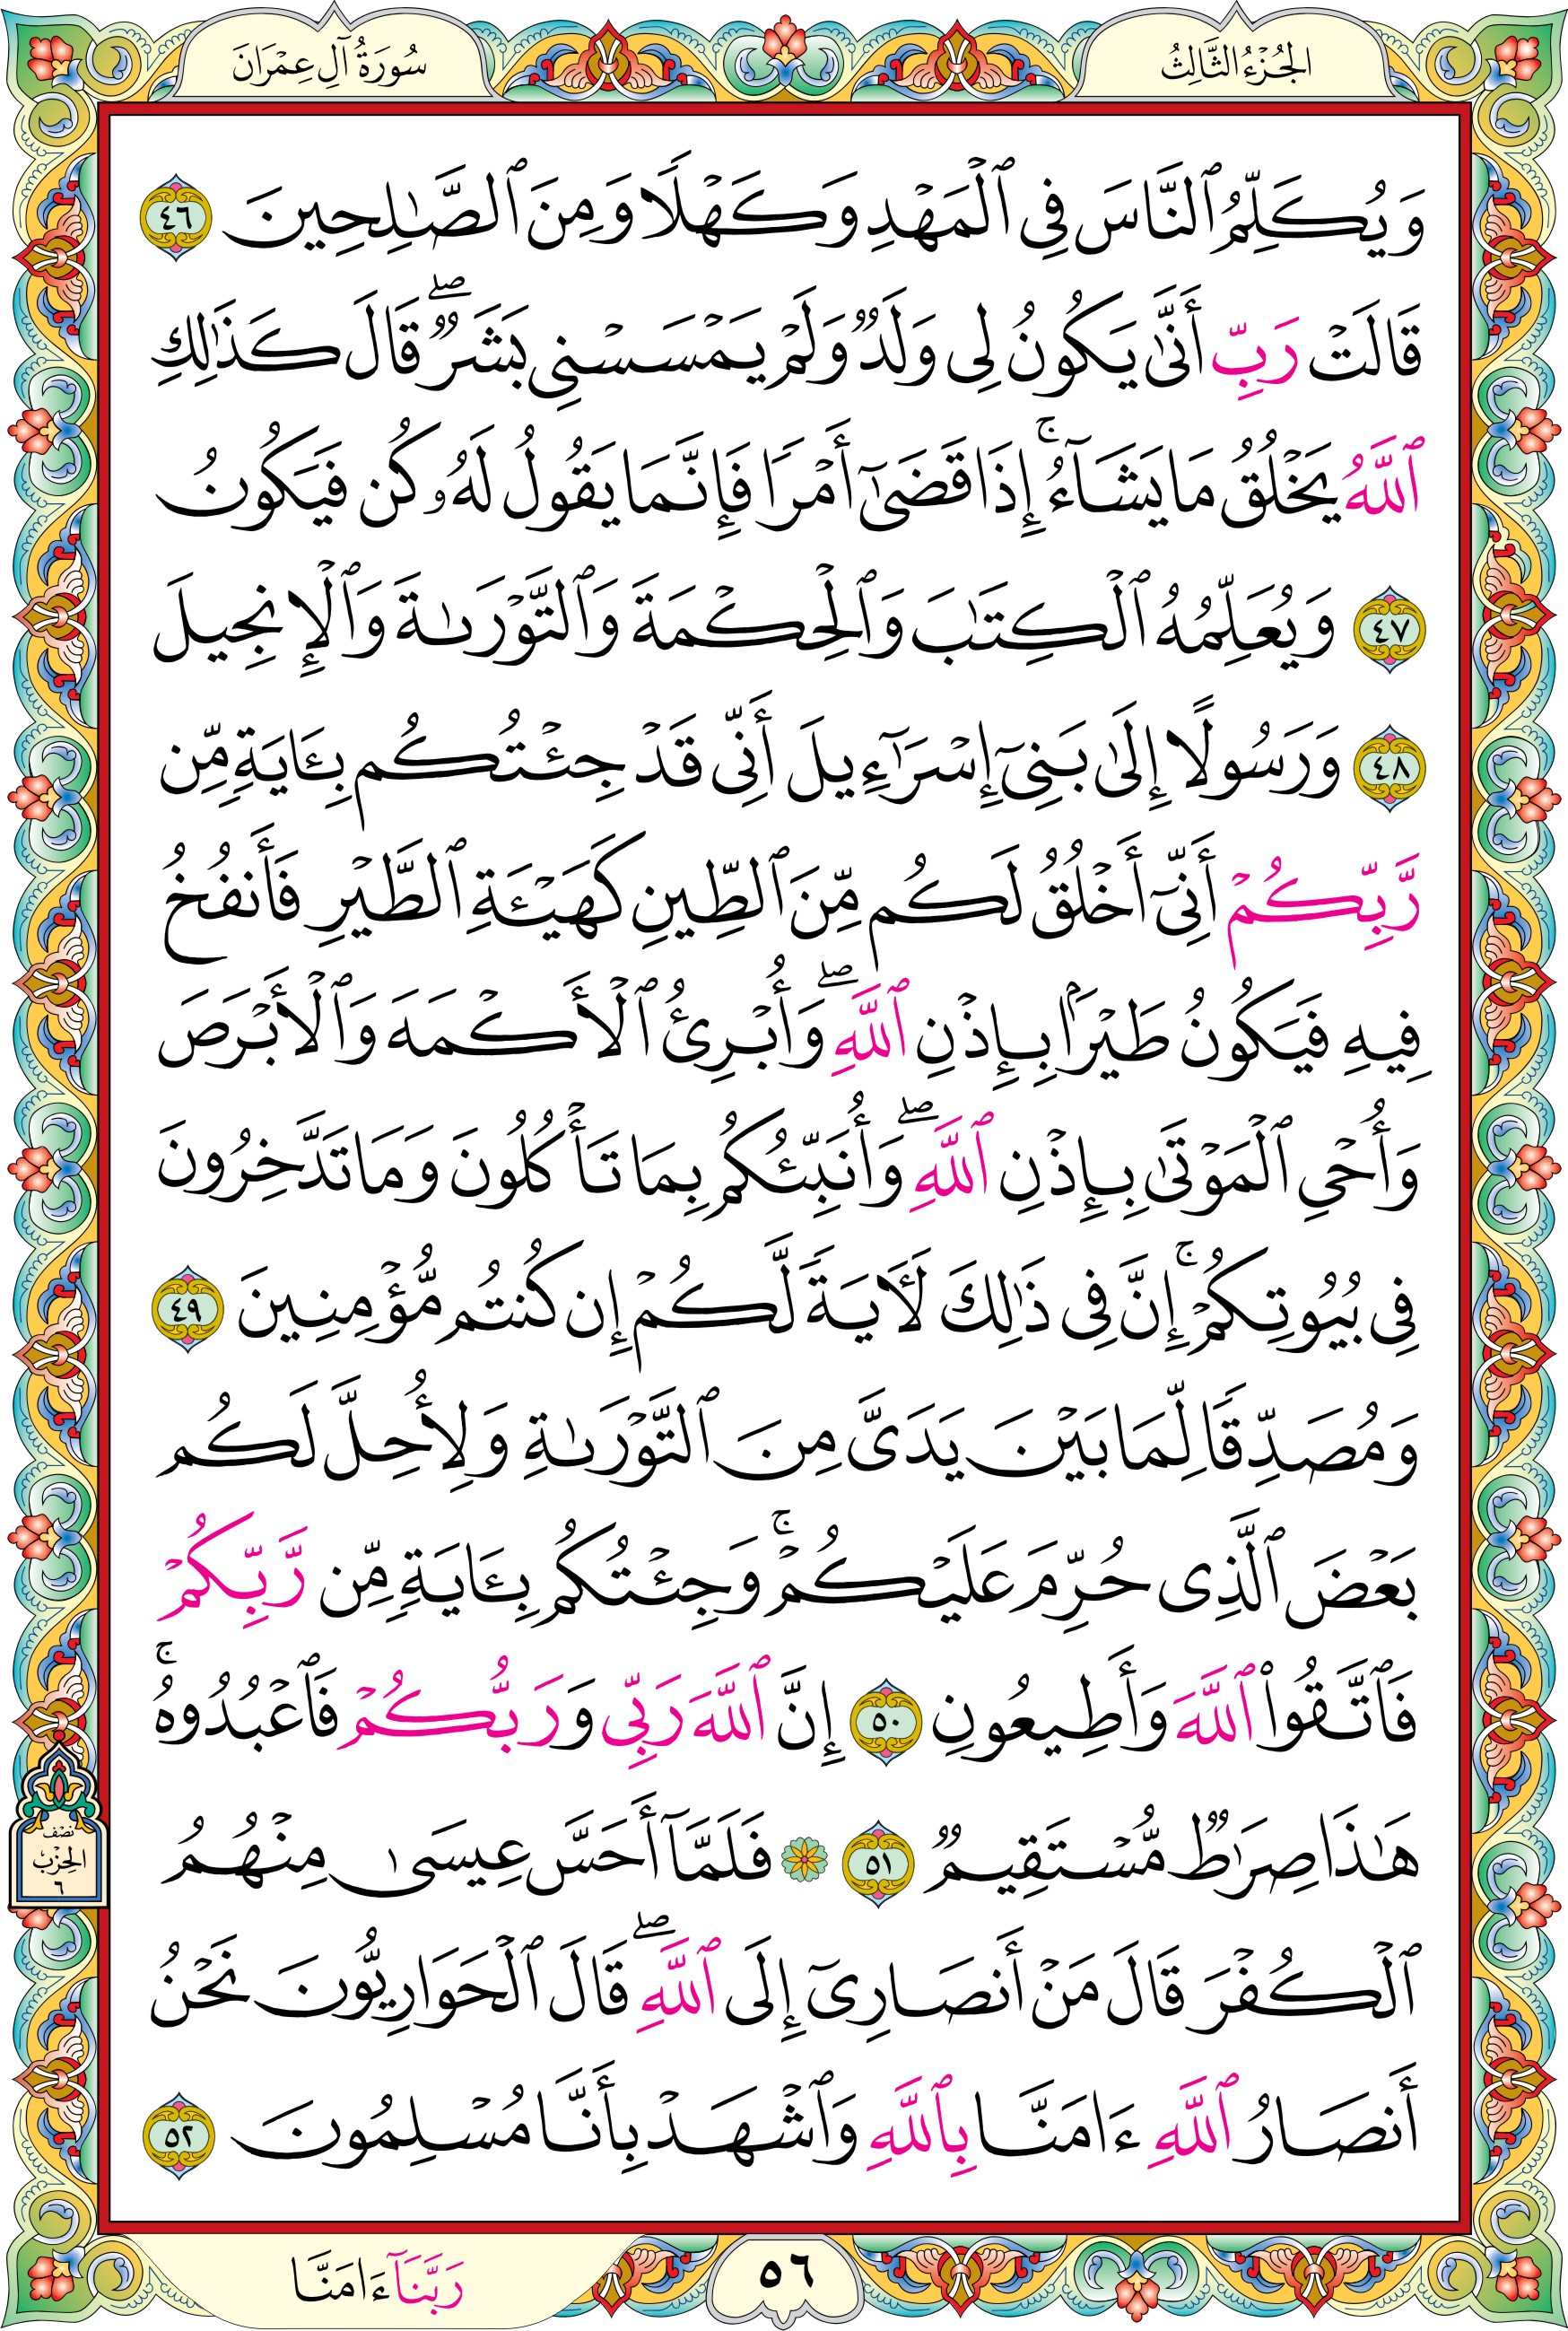 الجُزْءُ الثَّالِثُ
سُورَةُ آلِ عِمْرَانَ
وَيُكَلِّمُ ٱلنَّاسَ فِى ٱلْمَهْدِ وَكَهْلًا وَمِنَ ٱلصَّـٰلِحِينَ ٤٦
قَالَتْ رَبِّ أَنَّىٰ يَكُونُ لِى وَلَدٌ وَلَمْ يَمْسَسْنِى بَشَرٌ ۖ قَالَ كَذَٰلِكِ
ٱللَّهُ يَخْلُقُ مَا يَشَآءُ ۚ إِذَا قَضَىٰٓ أَمْرًا فَإِنَّمَا يَقُولُ لَهُۥ كُن فَيَكُونُ
٤٧ وَيُعَلِّمُهُ ٱلْكِتَـٰبَ وَٱلْحِكْمَةَ وَٱلتَّوْرَىٰةَ وَٱلْإِنجِيلَ
٤٨ وَرَسُولًا إِلَىٰ بَنِىٓ إِسْرَٰٓءِيلَ أَنِّى قَدْ جِئْتُكُم بِـَٔايَةٍ مِّن
رَّبِّكُمْ أَنِّىٓ أَخْلُقُ لَكُم مِّنَ ٱلطِّينِ كَهَيْـَٔةِ ٱلطَّيْرِ فَأَنفُخُ
فِيهِ فَيَكُونُ طَيْرًۢا بِإِذْنِ ٱللَّهِ ۖ وَأُبْرِئُ ٱلْأَكْمَهَ وَٱلْأَبْرَصَ
وَأُحْىِ ٱلْمَوْتَىٰ بِإِذْنِ ٱللَّهِ ۖ وَأُنَبِّئُكُم بِمَا تَأْكُلُونَ وَمَا تَدَّخِرُونَ
فِى بُيُوتِكُمْ ۚ إِنَّ فِى ذَٰلِكَ لَـَٔايَةً لَّكُمْ إِن كُنتُم مُّؤْمِنِينَ ٤٩
وَمُصَدِّقًا لِّمَا بَيْنَ يَدَىَّ مِنَ ٱلتَّوْرَىٰةِ وَلِأُحِلَّ لَكُم
بَعْضَ ٱلَّذِى حُرِّمَ عَلَيْكُمْ ۚ وَجِئْتُكُم بِـَٔايَةٍ مِّن رَّبِّكُمْ
فَٱتَّقُوا۟ ٱللَّهَ وَأَطِيعُونِ ٥٠ إِنَّ ٱللَّهَ رَبِّى وَرَبُّكُمْ فَٱعْبُدُوهُ ۚ
هَـٰذَا صِرَٰطٌ مُّسْتَقِيمٌ ٥١ ۞ فَلَمَّآ أَحَسَّ عِيسَىٰ مِنْهُمُ
نصْف
الحِزْب
٦
ٱلْكُفْرَ قَالَ مَنْ أَنصَارِىٓ إِلَى ٱللَّهِ ۖ قَالَ ٱلْحَوَارِيُّونَ نَحْنُ
أَنصَارُ ٱللَّهِ ءَامَنَّا بِٱللَّهِ وَٱشْهَدْ بِأَنَّا مُسْلِمُونَ ٥٢
٥٦
رَبَّنَآ ءَامَنَّا